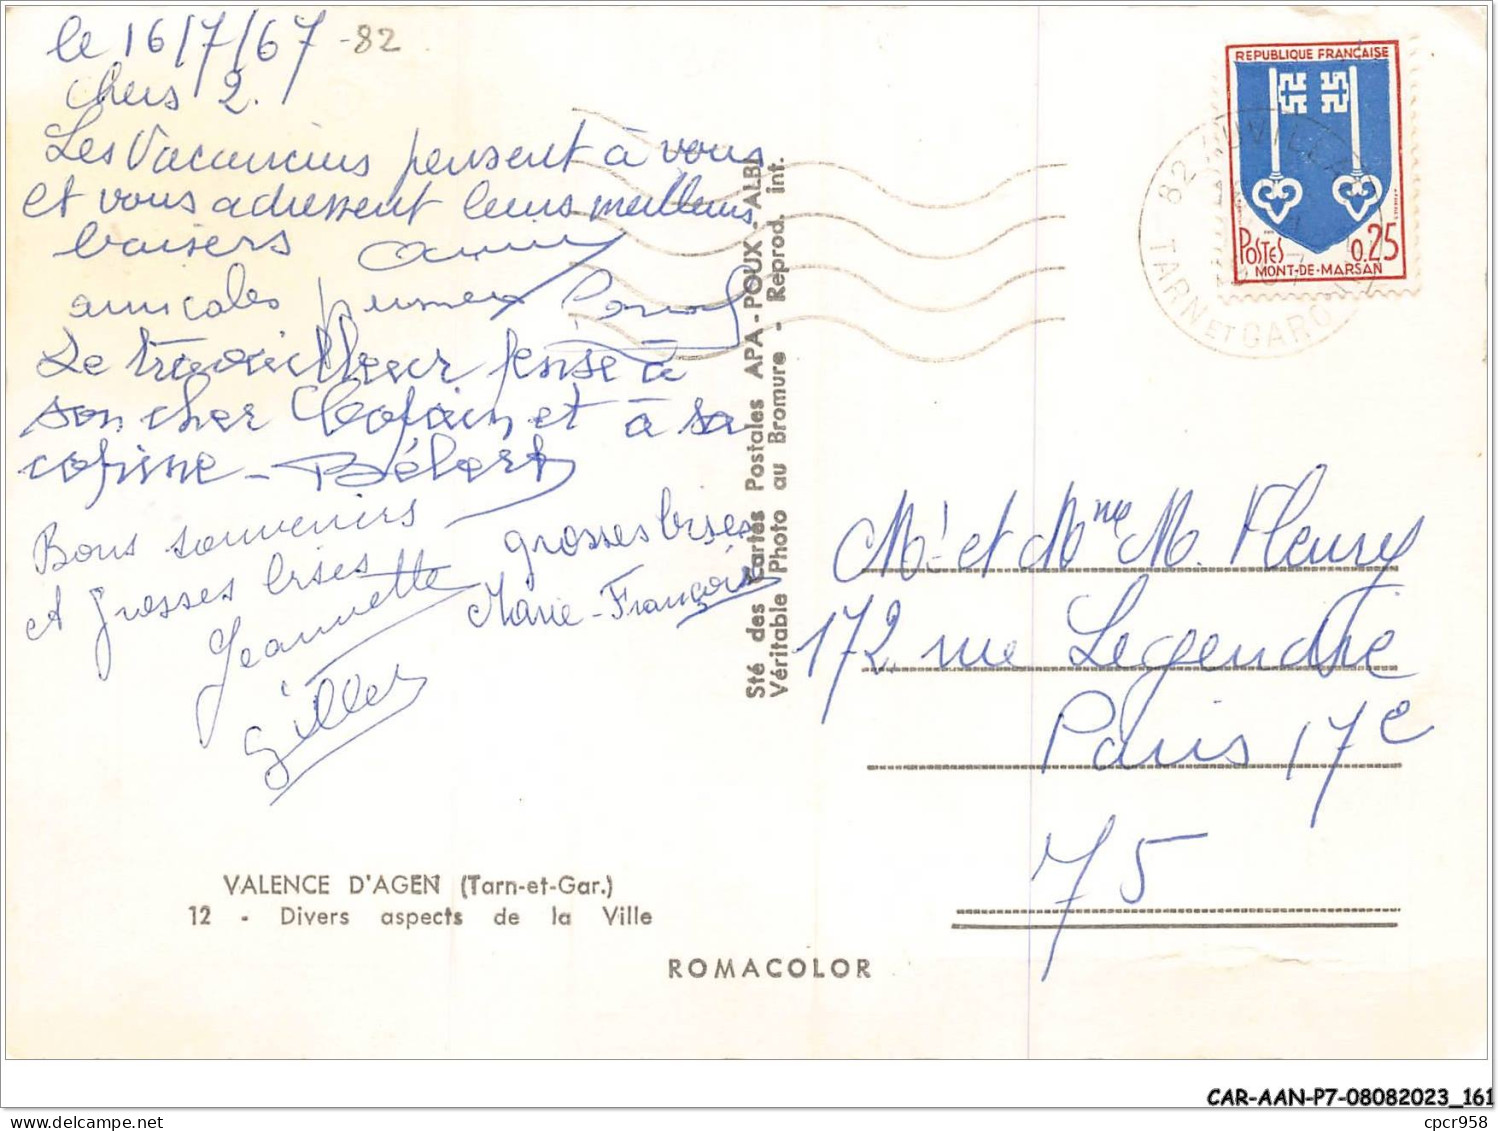 le 16/7/67 -82
Chers 2.
Les Vacanciers pensent à vous
et vous adressent leurs meilleurs
baisers
amicales
Le travailleur pense à
son cher Copain et à sa
copine - Bébert
Bons souvenirs
et grosses bises
Jeannette
Gilles
grosses bises
Marie-François
VALENCE D'AGEN (Tarn-et-Gar.)
12 - Divers aspects de la Ville
ROMACOLOR
Sté des Cartes Postales APA-POUX - ALBI
Véritable Photo au Bromure - Reprod. int.
REPUBLIQUE FRANÇAISE
POSTES 0.25
MONT-DE-MARSAN
82
TARN ET GARONNE
Mr et Mme M. Fleury
172 rue Legendre
Paris 17e
75
CAR-AAN-P7-08082023_161
cpcr958